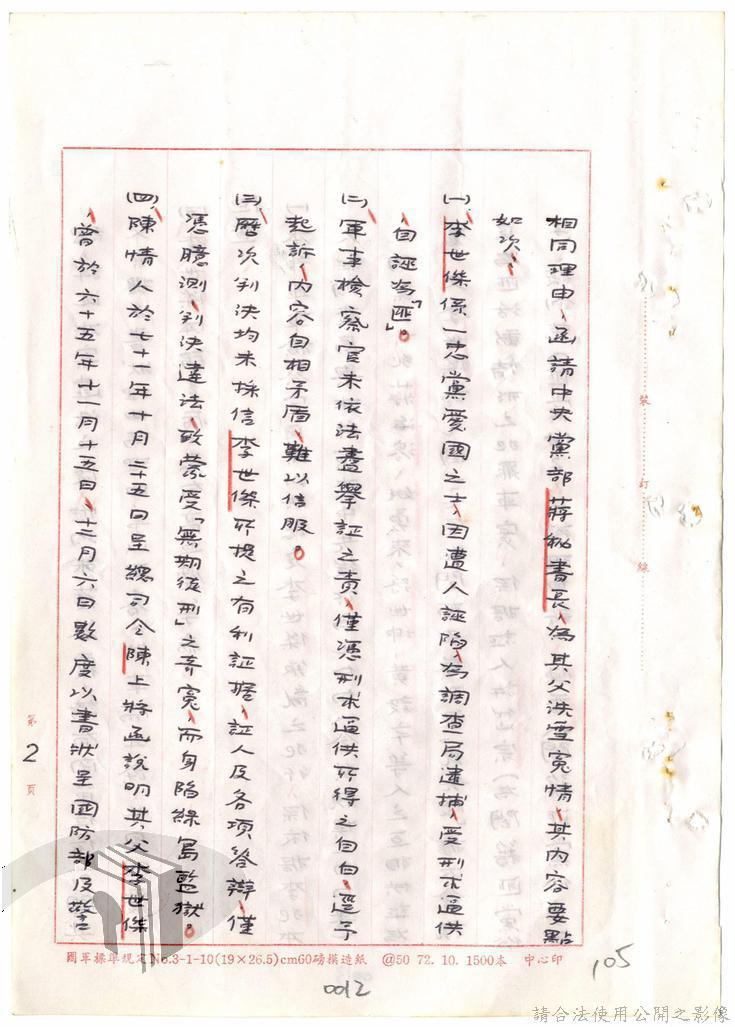 相同理由、函請中央黨部蔣秘書長、為其父洗雪冤情、其內容要點
如次：
㈠、李世傑係一忠黨愛國之士、因遭人誣陷、為調查局逮捕、受刑求逼供
、自誣為「匪」。
㈡、軍事檢察官未依法盡舉証之責、僅憑刑求逼供所得之自白、逕予
起訴、內容自相矛盾、難以信服。
㈢、歷次判決均未採信李世傑所提之有利証據、証人及各項答辯、僅
憑臆測、判決違法、致蒙受「無期徒刑」之奇冤、而身陷綠島監獄。
㈣、陳情人於七十一年十月二十五日呈總司令陳上將函說明其父李世傑
、曾於六十五年十一月十五日、十二月六日數度以書狀呈國防部及警告
裝訂線
第2頁
國軍標準規定No.3-1-10(19×26.5)cm60磅模造紙 @50 72. 10. 1500本 中心印
105
0012
請合法使用公開之影像